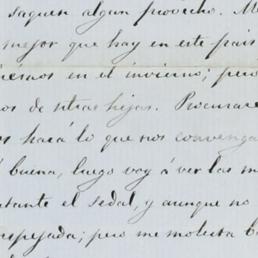 saquen algun provecho. M
mejor que hay en este pais
en el invierno; pero
os de otras hijas. Procurare
hará lo que nos convenga
buena, luego voy á ver las m
tante el sedal, y aunque no
espejada; pero me molesta b